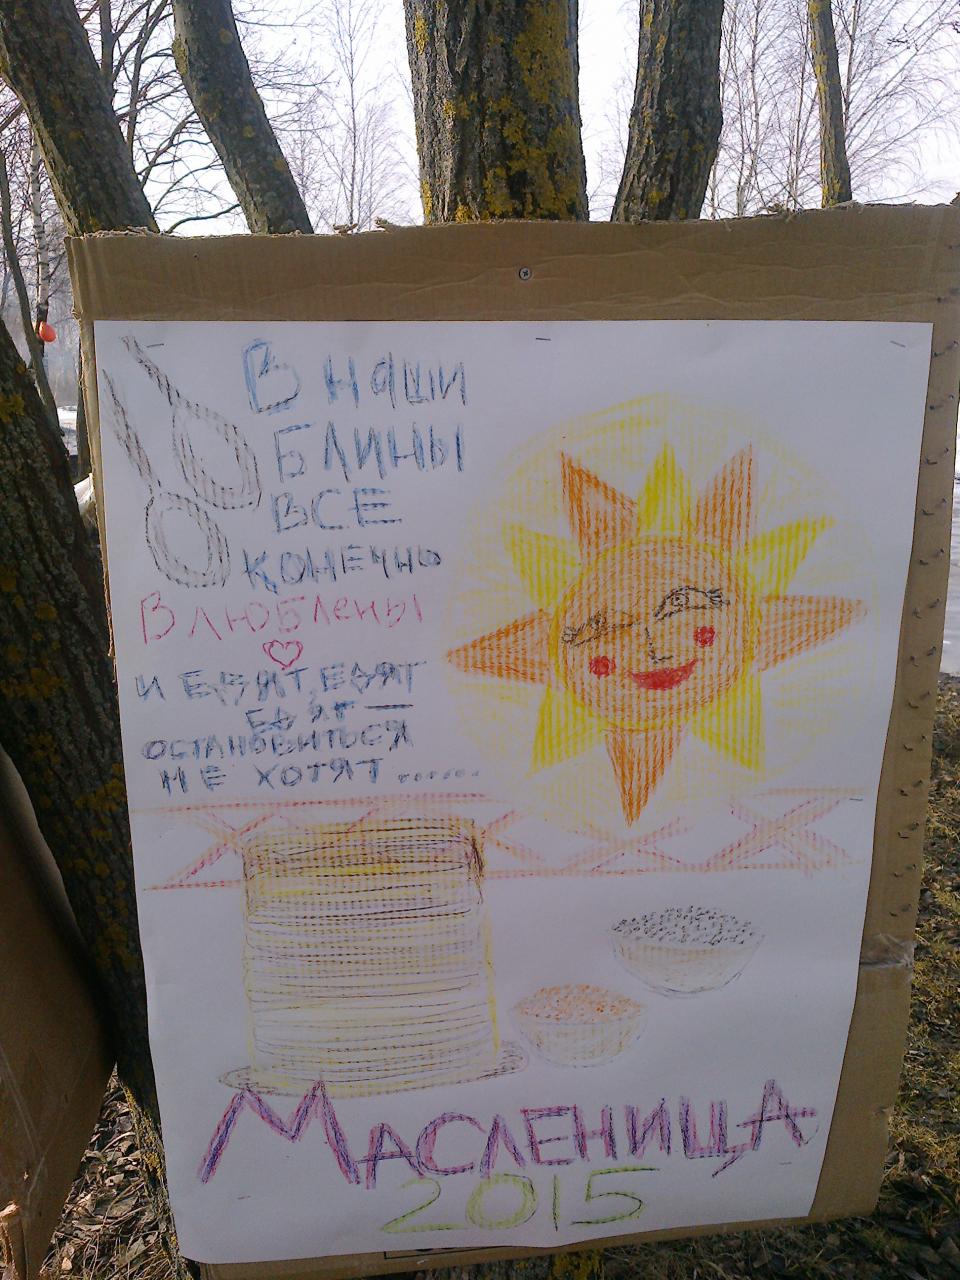 В наши
БЛИНЫ
ВСЕ
КОНЕЧНО
ВЛЮБЛЕНЫ
И ЕДЯТ, ЕДЯТ
ЕДЯТ —
ОСТАНОВИТЬСЯ
НЕ ХОТЯТ.......
МАСЛЕНИЦА
2015